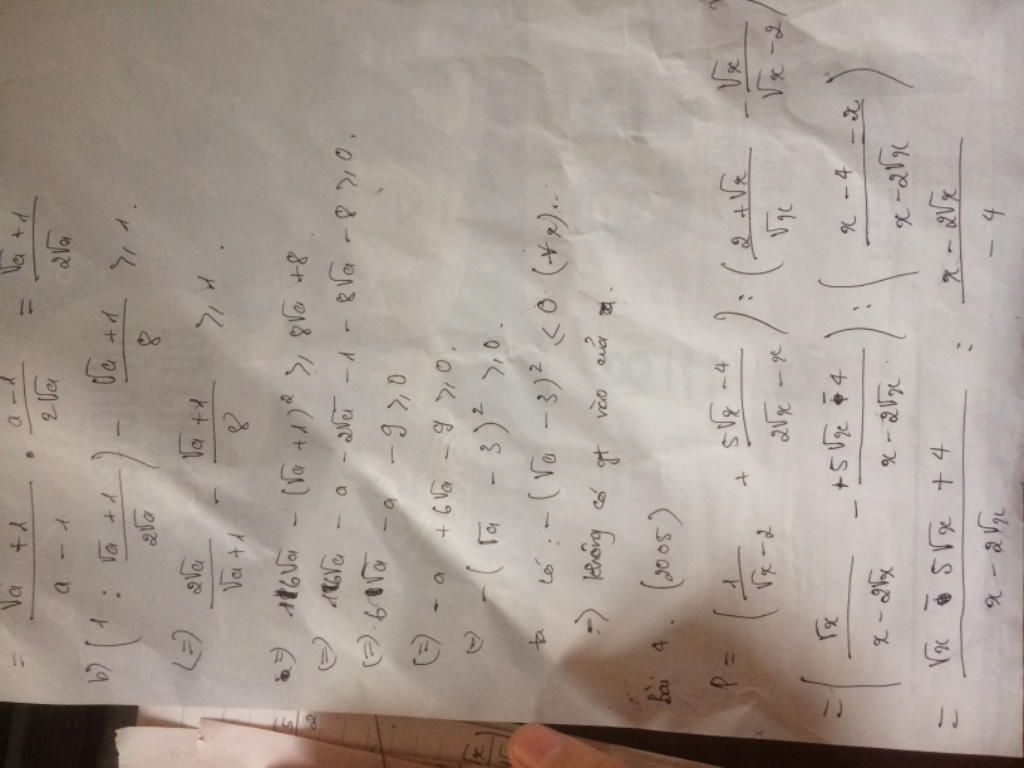 = (√a + 1)/(a - 1) . (a - 1)/(2√a) = (√a + 1)/(2√a)
b) (1 : (√a + 1)/(2√a)) - (√a + 1)/8 ≥ 1.
(=) (2√a)/(√a + 1) - (√a + 1)/8 ≥ 1.
=) 16√a - (√a + 1)² ≥ 8√a + 8
(=) 16√a - a - 2√a - 1 - 8√a - 8 ≥ 0.
(=) 6√a - a - 9 ≥ 0
(=) - a + 6√a - 9 ≥ 0.
(=) - (√a - 3)² ≥ 0.
ta có: - (√a - 3)² < 0 (∀x)...
=) không có gt nào của
Bài 4. (2005)
P = (1/(√x - 2) + (5√x - 4)/(2√x - x)) : ((2 + √x)/√x - √x/(√x - 2))
= (√x/(x - 2√x) - (+5√x - 4)/(x - 2√x)) : ((x - 4 - x)/(x - 2√x))
= (√x - 5√x + 4)/(x - 2√x) : (x - 2√x)/(- 4)